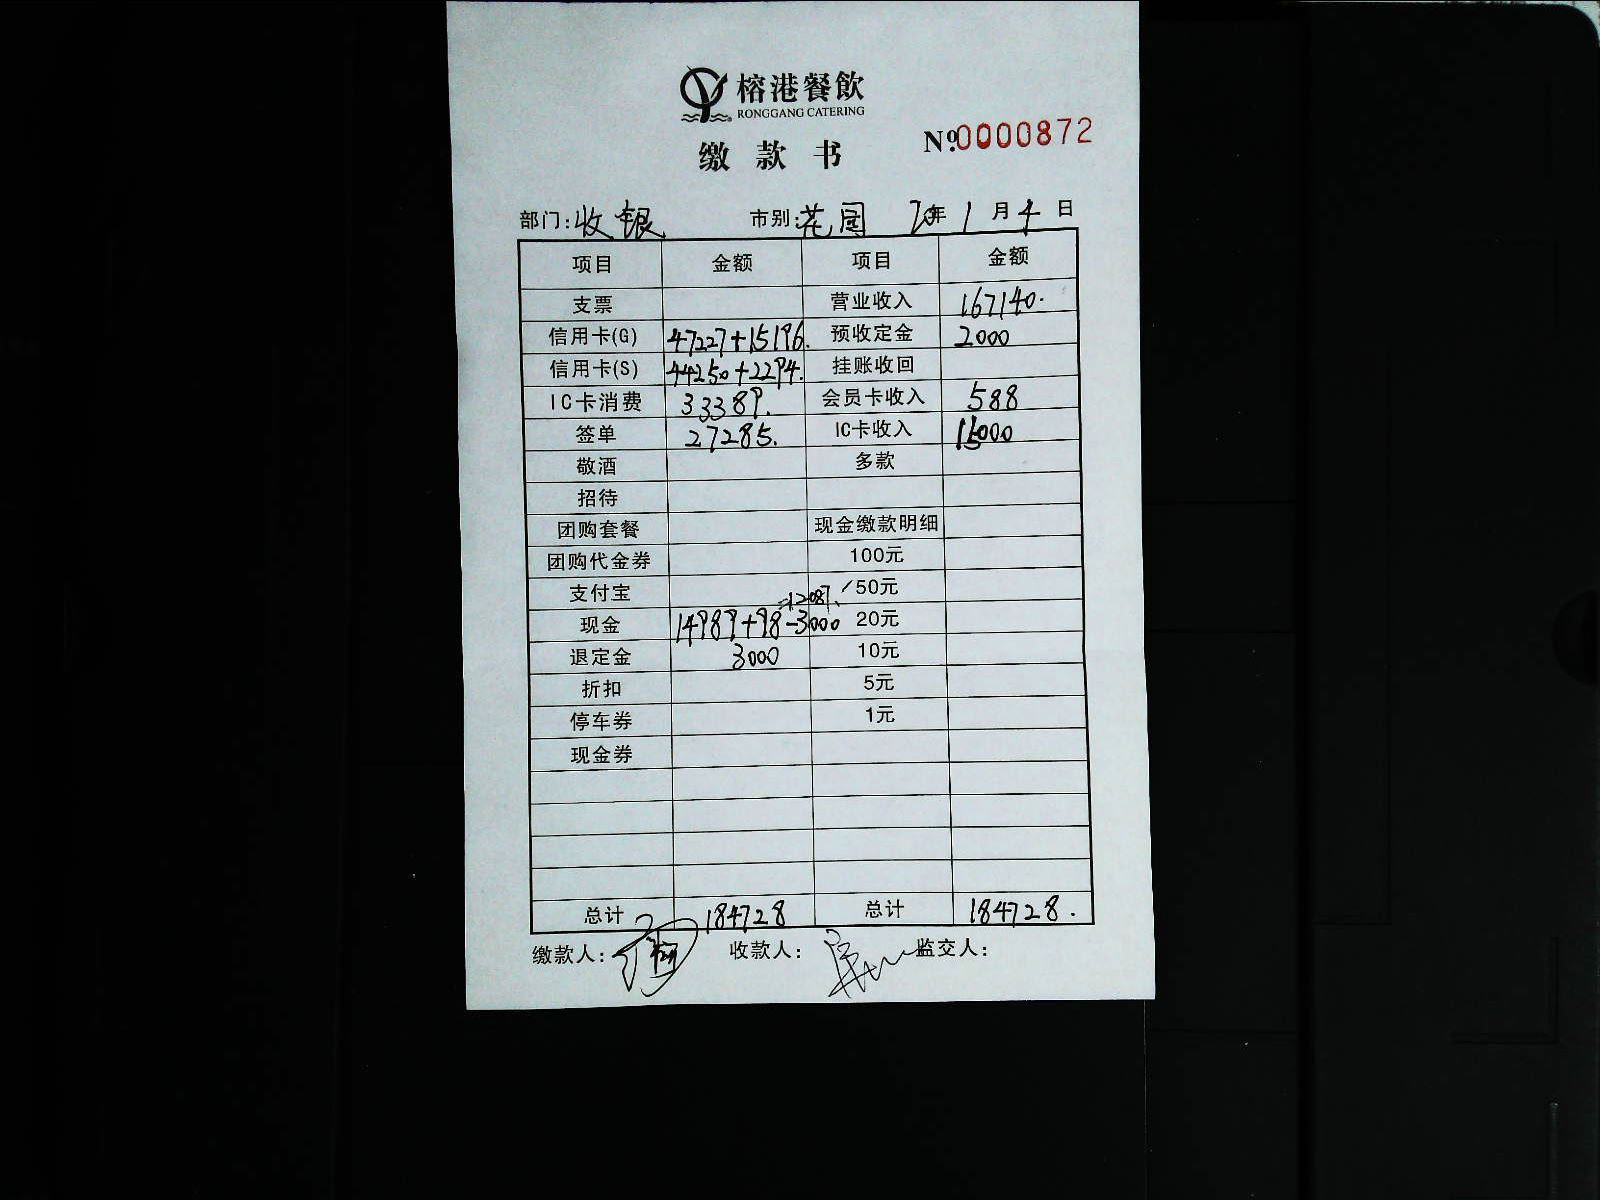 榕港餐飲
RONGGANG CATERING
缴款书 №0000872
部门:收银 市别:花园 20年1月4日
项目 金额 项目 金额
支票 营业收入 167140.
信用卡(G) 47227+15196. 预收定金 2000
信用卡(S) 44250+2294. 挂账收回
IC卡消费 33389. 会员卡收入 588
签单 27285. IC卡收入 15000
敬酒 多款
招待
团购套餐 现金缴款明细
团购代金券 100元
支付宝 50元
=12087.
现金 14989+98-3000 20元
退定金 3000 10元
折扣 5元
停车券 1元
现金券
总计 184728 总计 184728.
缴款人: 收款人: 监交人: